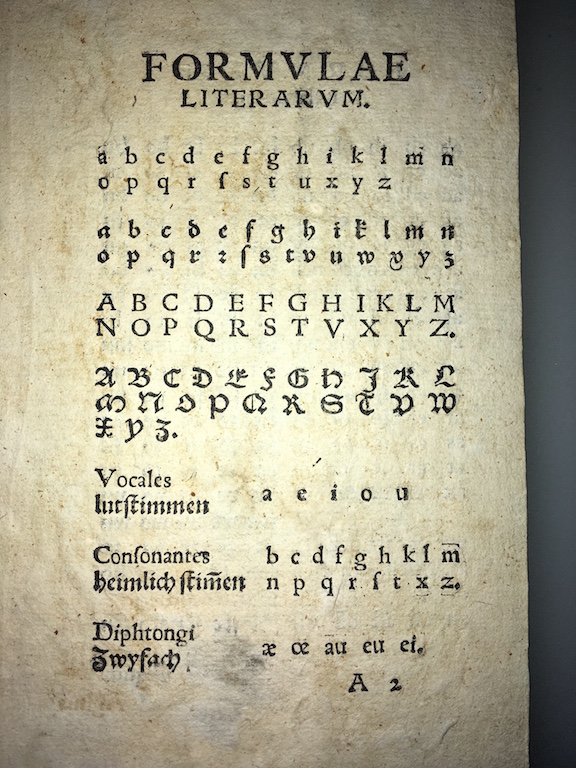 FORMVLAE
LITERARVM.
a b c d e f g h i k l m n
o p q r ſ s t u x y z
a b c d e f g h i k l m n
o p q r ꝛ ſ s t v u w x y z
A B C D E F G H I K L M
N O P Q R S T V X Y Z.
A B C D E F G H J K L
M N O P Q R S T V W
X Y Z.
Vocales
lutſtimmen
a e i o u
Conſonantes
heimlich ſtim̄en
b c d f g h k l m
n p q r ſ t x z.
Diphtongi
Zwyfach
æ œ au eu ei.
A 2